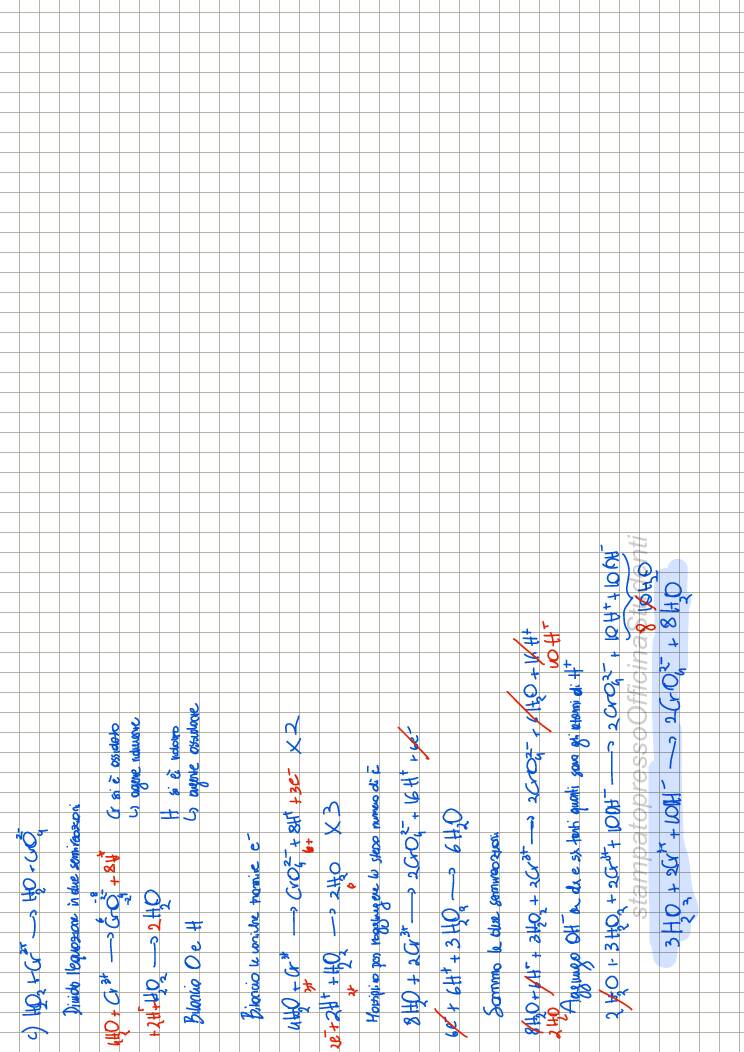 c) H₂O₂ + Cr³⁺ → H₂O + CrO₄²⁻
Divido l'equazione in due semireazioni
4H₂O + Cr³⁺ → CrO₄²⁻ + 8H⁺
Cr si è ossidato
↳ agente riducente
+2H⁺ + H₂O₂ → 2H₂O
H si è ridotto
↳ agente ossidante
Bilancio O e H
Bilancio le cariche tramite e⁻
4H₂O + Cr³⁺ → CrO₄²⁻ + 8H⁺ + 3e⁻ ×2
3+ 6+
2e⁻ + 2H⁺ + H₂O₂ → 2H₂O ×3
2+ 0
Moltiplico per raggiungere lo stesso numero di e⁻
8H₂O + 2Cr³⁺ → 2CrO₄²⁻ + 16H⁺ + 6e⁻
6e⁻ + 6H⁺ + 3H₂O₂ → 6H₂O
Sommo le due semireazioni
8H₂O + 6H⁺ + 3H₂O₂ + 2Cr³⁺ → 2CrO₄²⁻ + 6H₂O + 16H⁺
2H₂O 10H⁺
Aggiungo OH⁻ a dx e sx tanti quanti sono gli atomi di H⁺
2H₂O + 3H₂O₂ + 2Cr³⁺ + 10OH⁻ → 2CrO₄²⁻ + 10H⁺ + 10OH⁻
8 10H₂O
stampatopressoOfficinaStudenti
3H₂O₂ + 2Cr³⁺ + 10OH⁻ → 2CrO₄²⁻ + 8H₂O